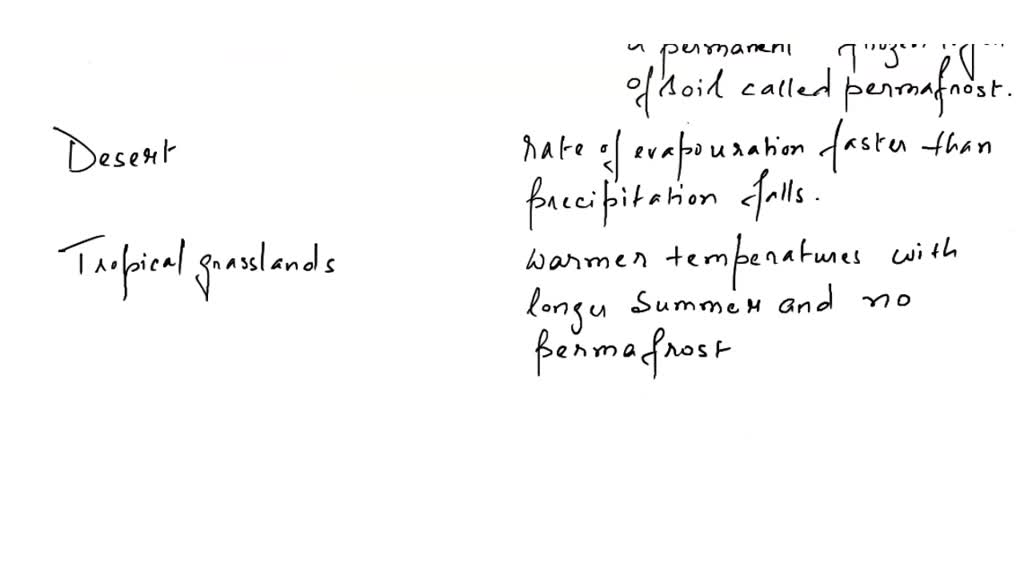 a permanent
of soil called permafrost.
Desert rate of evapouration faster than
precipitation falls.
Tropical grasslands warmer temperatures with
longer summer and no
permafrost